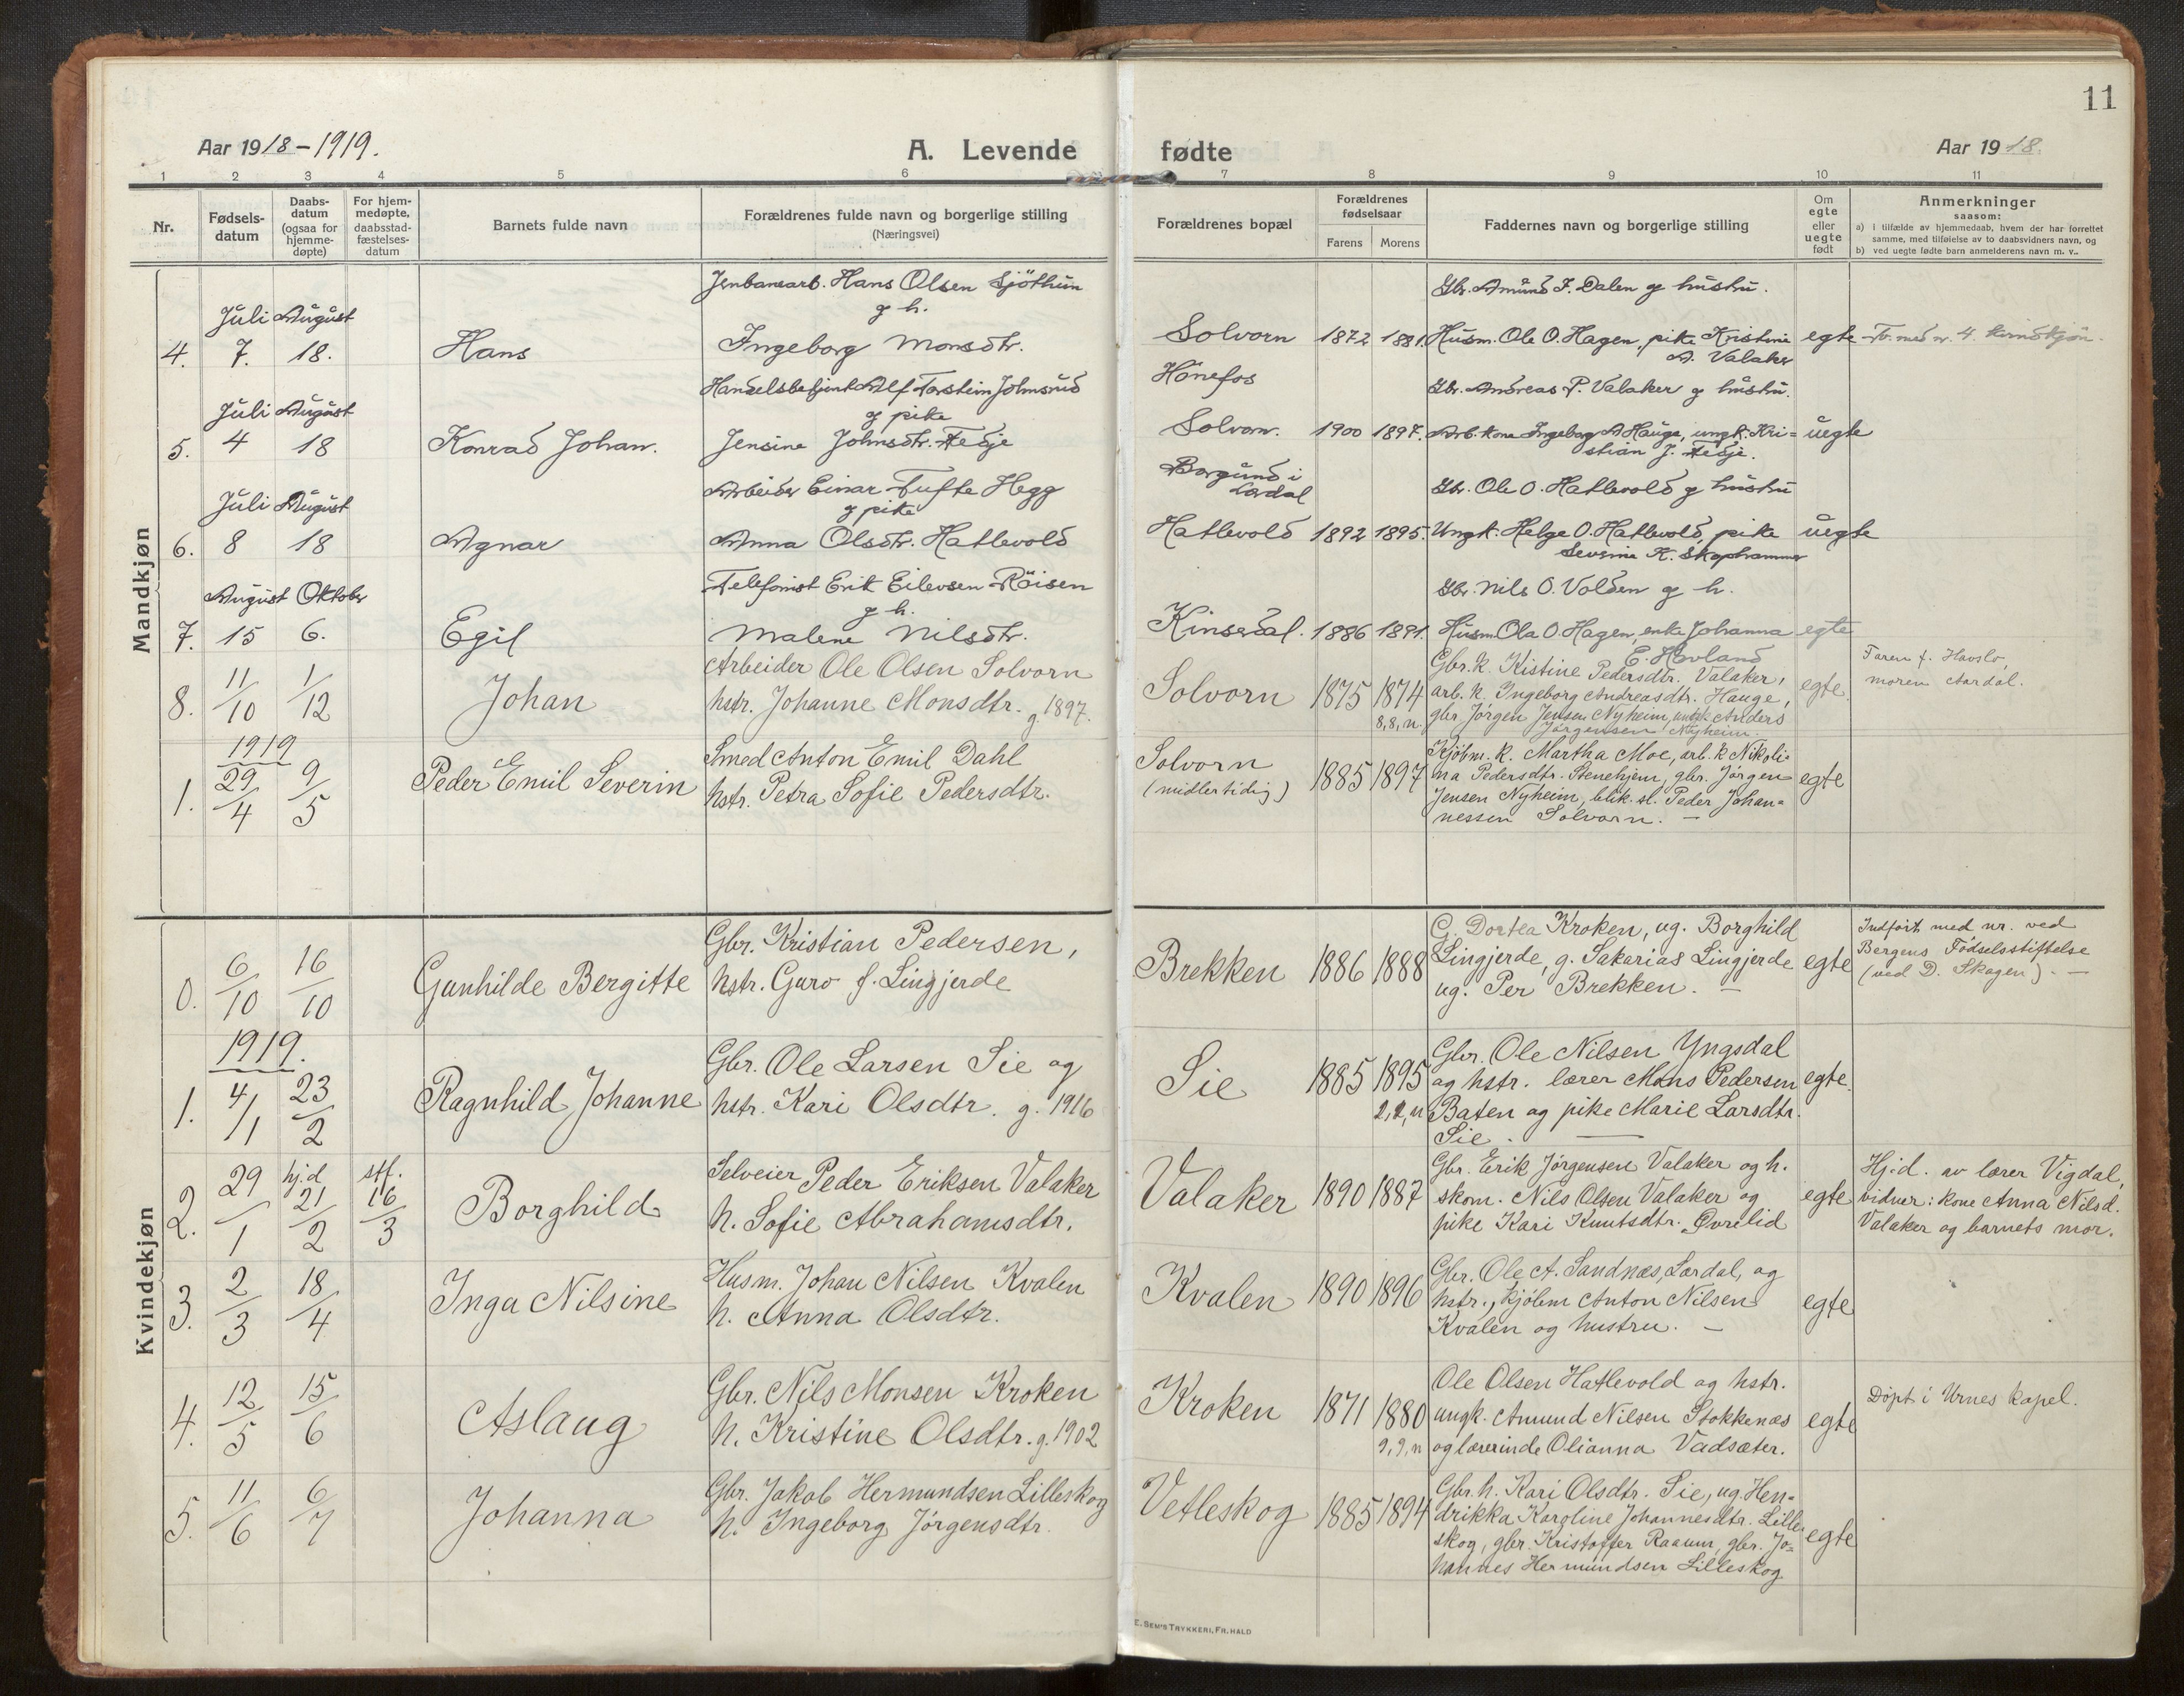 11
Aar 1918-1919.
A. Levende fødte
Aar 1918.
1 2 3 4 5 6 7 8 9 10 11
Nr.
Fødsels-
datum
Daabs-
datum
(ogsaa for
hjemme-
døpte)
For hjem-
medøpte,
daabsstad-
fæstelses-
datum
Barnets fulde navn
Forældrenes fulde navn og borgerlige stilling
(Næringsvei)
Forældrenes bopæl
Forældrenes
fødselsaar
Farens
Morens
Faddernes navn og borgerlige stilling
Om
egte
eller
uegte
født
Anmerkninger
saasom:
a) i tilfælde av hjemmedaab, hvem der har forrettet
samme, med tilføielse av to daabsvidners navn, og
b) ved uegte fødte barn anmelderens navn m. v..
Mandkjøn
Jenbanearb. Hans Olsen Sjöthun
g h.
Gbr. Amund J. Dalen g hustru.
Juli August
4. 7. 18. Hans
Ingeborg Monsdtr.
Solvorn 1872 1881.
Husm. Ole O. Hagen, pike Kristine
A. Valaker
egte
Tv. med nr. 4 kvindkjön.
Handelsbetjent Alf Torstein Johnsrud
g pike
Hönefos
Gbr. Andreas P. Valaker g hustru.
Juli August
5. 4 18 Konrad Johan.
Jensine Johnsdtr. Fedje
Solvorn. 1900 1897.
Arb. kone Ingeborg A Hauge, ungk. Kri=
stian J. Fedje.
uegte
Arbeider Einar Tufte Hegg
g pike
Borgund i
Lærdal
Gbr. Ole O. Hatlevold g hustru
Juli August
6. 8 18 Agnar
Anna Olsdtr. Hatlevold
Hatlevold 1892 1895.
Ungk. Helge O. Hatlevold, pike
Severine K. Skaphammer
uegte
Telefonist Erik Eilevsen Röisen
g h.
Gbr. Nils O. Volden g h.
August Oktober
7. 15 6. Egil
Malene Nilsdtr.
Kinsedal. 1886 1891.
Husm. Ola O. Hagen, enke Johanna
E. Hovland
egte
8. 11/10 1/12 Johan
Arbeider Ole Olsen Solvorn
hstr. Johanne Monsdtr. g. 1897.
Solvorn 1875 1874
8, 8, n.
Gbr. k. Kistine Pedersdtr. Valaker,
arb. k. Ingeborg Andreasdtr. Hauge,
gbr. Jørgen Jensen Nyheim, ungk. Anders
Jørgensen Nyheim.
egte
Faren f. Havslo,
moren Aardal.
1919
1. 29/4 9/5 Peder Emil Severin
Smed Anton Emil Dahl
hstr. Petra Sofie Pedersdtr.
Solvorn
(midlertidig)
1885 1897
Kjøbm. k. Martha Moe, arb. k Nikoli=
na Pedersdtr. Stenehjem, gbr. Jørgen
Jensen Nyheim, blik. sl. Peder Johan=
nessen Solvorn. —
egte
Kvindekjøn
0. 6/10 16/10 Gunhilde Bergitte
Gbr. Kristian Pedersen,
hstr. Guro f. Lingjerde
Brekken 1886 1888
G. Dortea Kroken, ug. Borghild
Lingjerde, g. Sakarias Lingjerde
ug. Per Brekken. —
egte
Indført med nr. ved
Bergens Fødselsstiftelse
(ved D. Skagen). —
1919.
1. 4/1 23/2 Ragnhild Johanne
Gbr. Ole Larsen Sie og
hstr. Kari Olsdtr. g. 1916
Sie 1885 1895
2, 2, n
Gbr. Ole Nilsen Yngsdal
og hstr. lærer Mons Pedersen
Baten og pike Marie Larsdtr.
Sie. —
egte.
2. 29/1 hj.d 21/2 stf. 16/3 Borghild
Selveier Peder Eriksen Valaker
h. Sofie Abrahamsdtr.
Valaker 1890 1887
Gbr. Erik Jørgensen Valaker og h.
skom. Nils Olsen Valaker og
pike Kari Knutsdtr. Øvrelid
egte
Hj.d. av lærer Vigdal,
vidner: kone Anna Nilsd.
Valaker og barnets mor.
3. 2/3 18/4 Inga Nilsine
Husm. Johan Nilsen Kvalen
h. Anna Olsdtr.
Kvalen 1890 1896
Gbr. Ole A. Sandnæs, Lærdal, og
hstr., kjøbm Anton Nilsen
Kvalen og hustru. —
egte
4. 12/5 15/6 Aslaug
Gbr. Nils Monsen Kroken
h. Kristine Olsdtr. g. 1902
Kroken 1871 1880
9, 9, n
Ole Olsen Hatlevold og hstr.
ungk. Amund Nilsen Stokkenæs
og lærerinde Olianna Vadsæter.
egte
Døpt i Urnes kapel.
5. 11/6 6/7 Johanna
Gbr. Jakob Hermundsen Lilleskog
h. Ingeborg Jørgensdtr.
Vetleskog 1885 1894
Gbr. h. Kari Olsdtr. Sie, ug. Hen=
drikka Karoline Johannesdtr. Lille
skog, gbr. Kristoffer Raaum, gbr. Jo=
hannes Hermundsen Lilleskog
egte
E. SEM'S TRYKKERI, FR. HALD